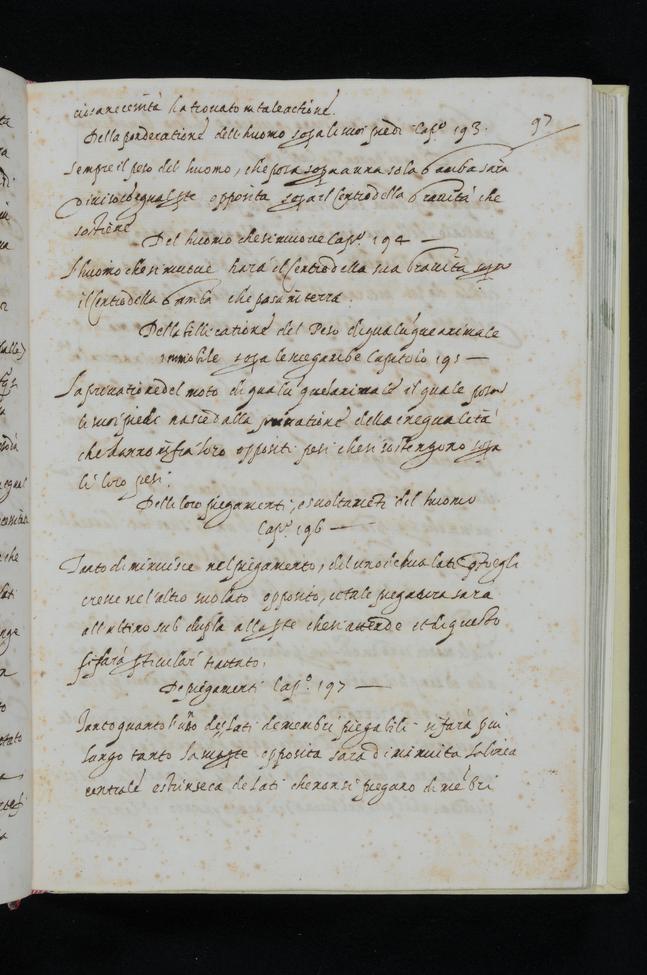 cosa necessità ha trovato in tale actione.
Della ponderatione dell huomo sopa li suoi piedi Cap.º 193.
97
Sempre il peso del huomo, che posa sopa una sola Gamba sarà
Diviso equal pte opposita sopa il Centro della Gravità che
sostiene
Del huomo che si muove Cap.º 194 —
L huomo che si muove harà il Centro della sua Gravita sopa
il Centro della Gamba che posa in terra.
Della bilicatione del Peso di qualùque animale
immobile sopa le sue gambe Capitolo 195 —
La privatione del moto di qualùque animale il quale posa
li suoi piedi nasie dalla privatione della inequalità
che hanno infra loro oppositi pesi che si sostengono sopa
li loro pesi.
Delli loro piegamenti, e voltamèti del huomo
Cap.º 196 —
Tanto diminuisce nel piegamento, del uno de sua lati quāto egli
cresce nel altro suo lato opposito, et tale piegatura sara
all ultimo sub dupla alla pte che si attende et di questo
si farà pticular trattato.
De piegamenti Cap.º 197 —
Tanto quanto l'uno de lati de membri piegabili si farà piu
lungo tanto la parte opposita sarà diminuita la linea
centrale estrinseca de lati che non si piegano di mèbri